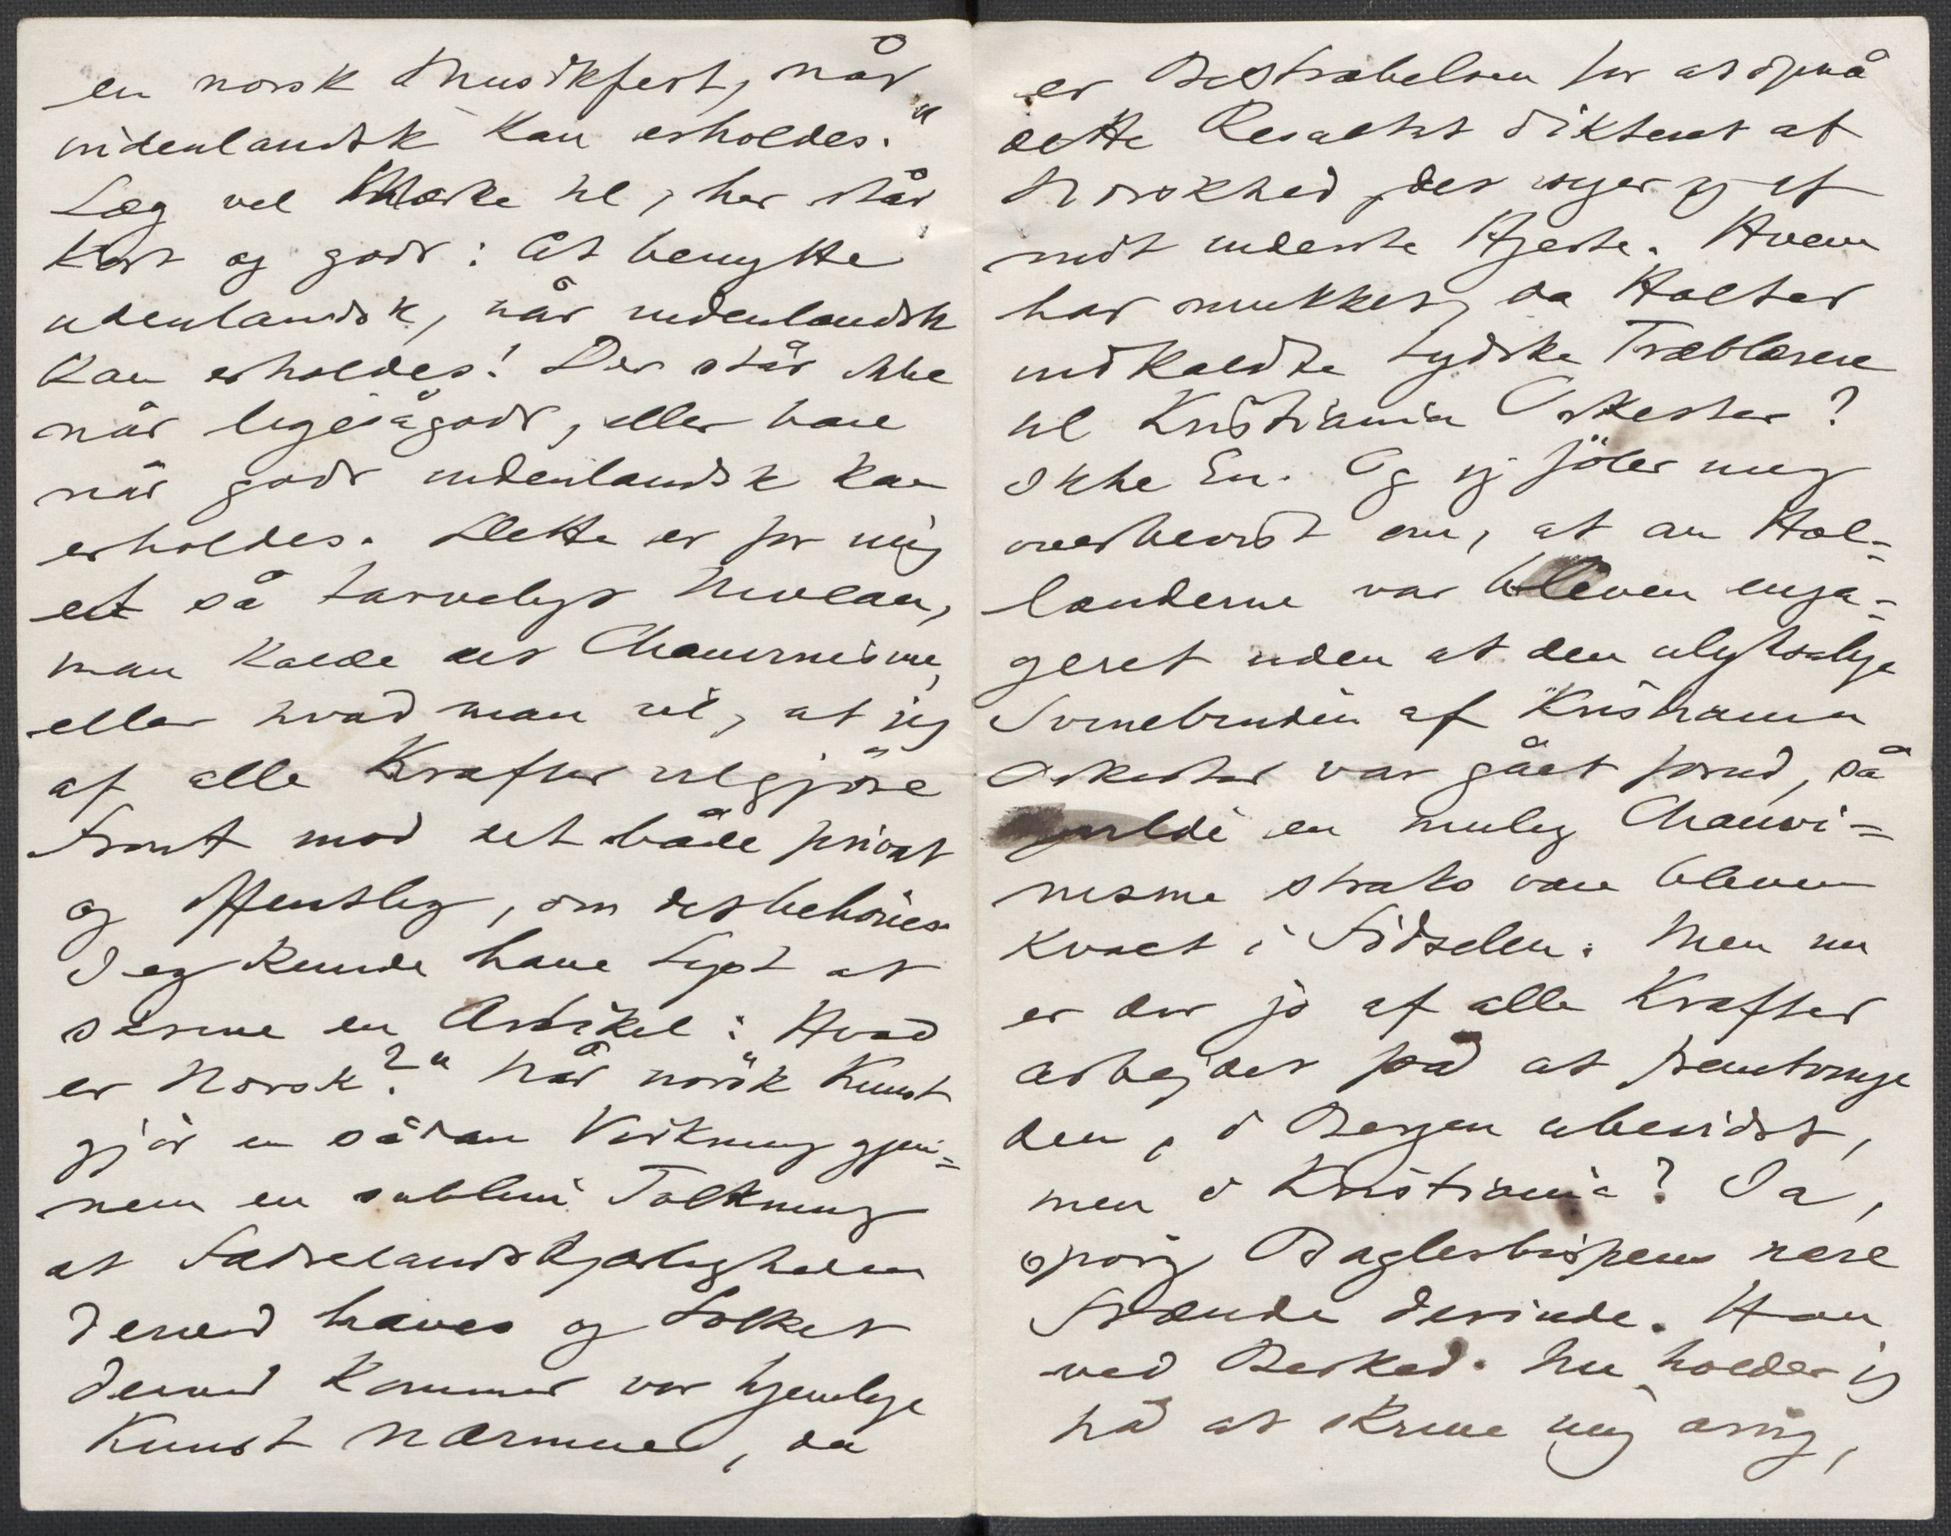 en norsk Musikfest, når
indenlandsk kan erholdes."
Læg vel Mærke til, her står
kort og godt: At benytte
udenlandsk, når indenlandsk
kan erholdes! Der står ikke
når ligesågodt, eller bare
når godt indenlandsk kan
erholdes. Dette er for mig
et så tarveligt Niveau,
man kalde det Chauvinisme,
eller hvad man vil, at jeg
af alle Kræfter vil gjöre
Front mod det både privat
og offentlig, om det behöves.
Jeg kunde have Lyst at
skrive en Artikel: Hvad
er Norsk?" Når norsk Kunst
gjör en sådan Virkning gjen=
nem en sublim Tolkning
at Fædrelandskjærligheden
derved hæves og Folket
derved kommer vor hjemlige
Kunst nærmere, da
er Bestræbelsen for at opnå
dette Resultat dikteret af
Norskhed, det siger jeg af
mit inderste Hjerte. Hvem
har mukket, da Halvorsen
indkaldte tydske Træblæsere
til Kristiania Orkester?
Ikke En. Og jeg föler mig
overbevist om, at om Hol=
lænderne var bleven enga=
geret uden at den ulyksalige
Svinebinden af Kristiania
Orkester var gået forud, så
vilde en mulig Chauvi=
nisme straks være bleven
kvalt i Födselen. Men nu
er der jo af alle Kræfter
arbejdet på at fremtvinge
den, i Bergen ubevidst,
men i Kristiania? Ja,
spörg Baglerbispens nære
Frænde derinde. Han
ved Besked. Nu holder jeg
på at skrive mig arrig,